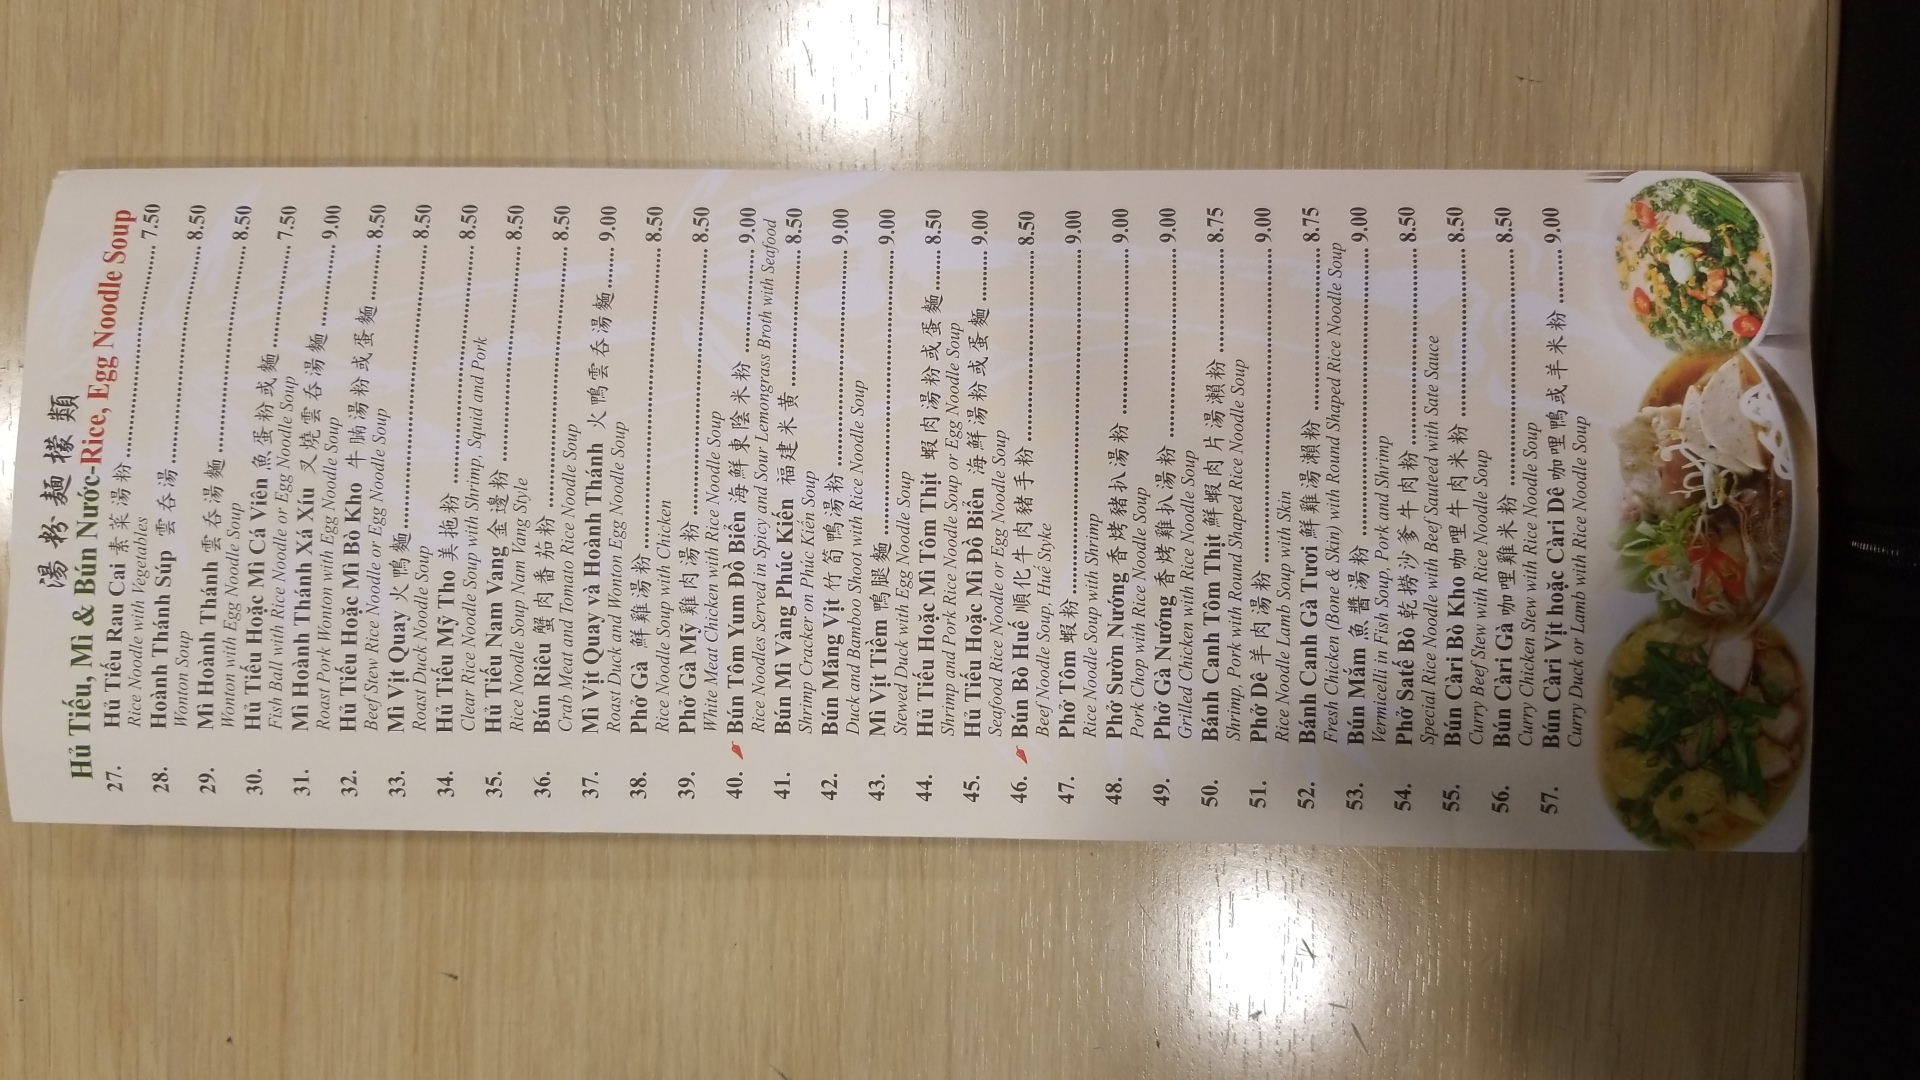 湯粉麵檬類
Hủ Tiếu, Mì & Bún Nước-Rice, Egg Noodle Soup
27. Hủ Tiếu Rau Cai 素菜湯粉 7.50
Rice Noodle with Vegetables
28. Hoành Thánh Súp 雲吞湯 8.50
Wonton Soup
29. Mì Hoành Thánh 雲吞湯麵 8.50
Wonton with Egg Noodle Soup
30. Hủ Tiếu Hoặc Mì Cá Viên 魚蛋粉或麵 7.50
Fish Ball with Rice Noodle or Egg Noodle Soup
31. Mì Hoành Thánh Xá Xíu 叉燒雲吞湯麵 9.00
Roast Pork Wonton with Egg Noodle Soup
32. Hủ Tiếu Hoặc Mì Bò Kho 牛腩湯粉或蛋麵 8.50
Beef Stew Rice Noodle or Egg Noodle Soup
33. Mì Vịt Quay 火鴨麵 8.50
Roast Duck Noodle Soup
34. Hủ Tiếu Mỹ Tho 美拖粉 8.50
Clear Rice Noodle Soup with Shrimp, Squid and Pork
35. Hủ Tiếu Nam Vang 金邊粉 8.50
Rice Noodle Soup Nam Vang Style
36. Bún Riêu 蟹肉番茄粉 8.50
Crab Meat and Tomato Rice Noodle Soup
37. Mì Vịt Quay và Hoành Thánh 火鴨雲吞湯麵 9.00
Roast Duck and Wonton Egg Noodle Soup
38. Phở Gà 鮮雞湯粉 8.50
Rice Noodle Soup with Chicken
39. Phở Gà Mỹ 雞肉湯粉 8.50
White Meat Chicken with Rice Noodle Soup
40. Bún Tôm Yum Đồ Biển 海鮮東陰米粉 9.00
Rice Noodles Served in Spicy and Sour Lemongrass Broth with Seafood
41. Bún Mì Vàng Phúc Kiến 福建米黄 8.50
Shrimp Cracker on Phúc Kiến Soup
42. Bún Măng Vịt 竹筍鴨湯粉 9.00
Duck and Bamboo Shoot with Rice Noodle Soup
43. Mì Vịt Tiềm 鴨腿麵 9.00
Stewed Duck with Egg Noodle Soup
44. Hủ Tiếu Hoặc Mì Tôm Thịt 蝦肉湯粉或蛋麵 8.50
Shrimp and Pork Rice Noodle Soup or Egg Noodle Soup
45. Hủ Tiếu Hoặc Mì Đồ Biển 海鮮湯粉或蛋麵 9.00
Seafood Rice Noodle or Egg Noodle Soup
46. Bún Bò Huế 順化牛肉豬手粉 8.50
Beef Noodle Soup, Hué Styke
47. Phở Tôm 蝦粉 9.00
Rice Noodle Soup with Shrimp
48. Phở Sườn Nướng 香烤豬扒湯粉 9.00
Pork Chop with Rice Noodle Soup
49. Phở Gà Nướng 香烤雞扒湯粉 9.00
Grilled Chicken with Rice Noodle Soup
50. Bánh Canh Tôm Thịt 鮮蝦肉片湯瀨粉 8.75
Shrimp, Pork with Round Shaped Rice Noodle Soup
51. Phở Dê 羊肉湯粉 9.00
Rice Noodle Lamb Soup with Skin
52. Bánh Canh Gà Tươi 鮮雞湯瀨粉 8.75
Fresh Chicken (Bone & Skin) with Round Shaped Rice Noodle Soup
53. Bún Mắm 魚醬湯粉 9.00
Vermicelli in Fish Soup, Pork and Shrimp
54. Phở Satế Bò 乾撈沙爹牛肉粉 8.50
Special Rice Noodle with Beef Sauteed with Sate Sauce
55. Bún Càri Bò Kho 咖哩牛肉米粉 8.50
Curry Beef Stew with Rice Noodle Soup
56. Bún Càri Gà 咖哩雞米粉 8.50
Curry Chicken Stew with Rice Noodle Soup
57. Bún Càri Vịt hoặc Càri Dê 咖哩鴨或羊米粉 9.00
Curry Duck or Lamb with Rice Noodle Soup